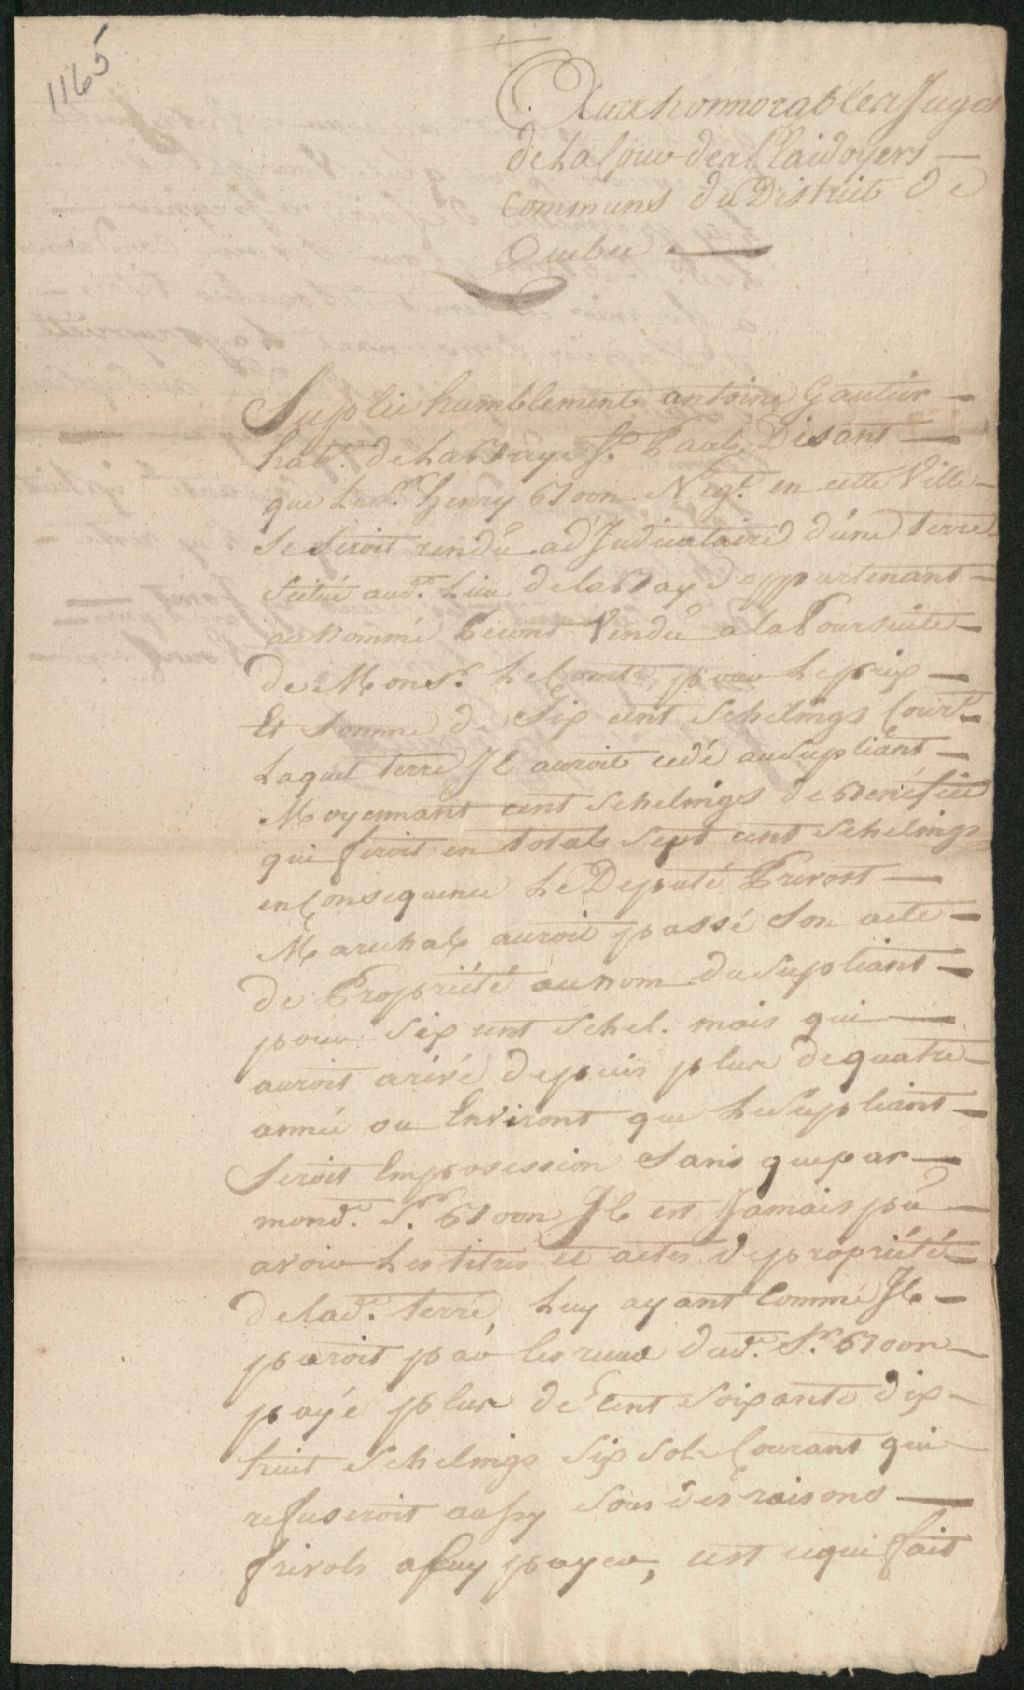 1165
Aux honnorables Juges
de La Cour des Plaidoyers
Communs du District De
Quebec
Suplie humblement antoine Gautier
habt. de La Baye St. Paul. Disant
que Le Sr. Henry Boon Negt. en cette Ville
Se Seroit rendû adJudicataire d'une terre
Scitué aud. Lieu de la Baye appartenant
au nommé Vendû a la Poursuite
de Monsr. LeComte, pour Le prix
Et Somme de Six cent Schelings Court.
Laquel terre Il auroit cedé au Supliant
Moyennant cent Schelings de Benéfice
qui feroit en total Sept cent Schelings
en Consequence Le Deputé Prevost
Marichal auroit passé Son acte
de Propriété au nom du Supliant
pour Six cent Schel. mais qui
auroit arivé depuis plus de quatre
année ou Environt que Le Supliant
Seroit Empossession Sans que par
mond. Sr. Boon Il est Jamais pû
avoir Les titres et actes de propriété
de lad. terre, Luy ayant Comme Il
paroit par les recus dud. Sr. Boon
payé plus de Cent Soixante dix
huit Schelings Six Sols Courant qui
refuseroit aussy Sous des raisons
frivols a Luy payer, cest cequi fait